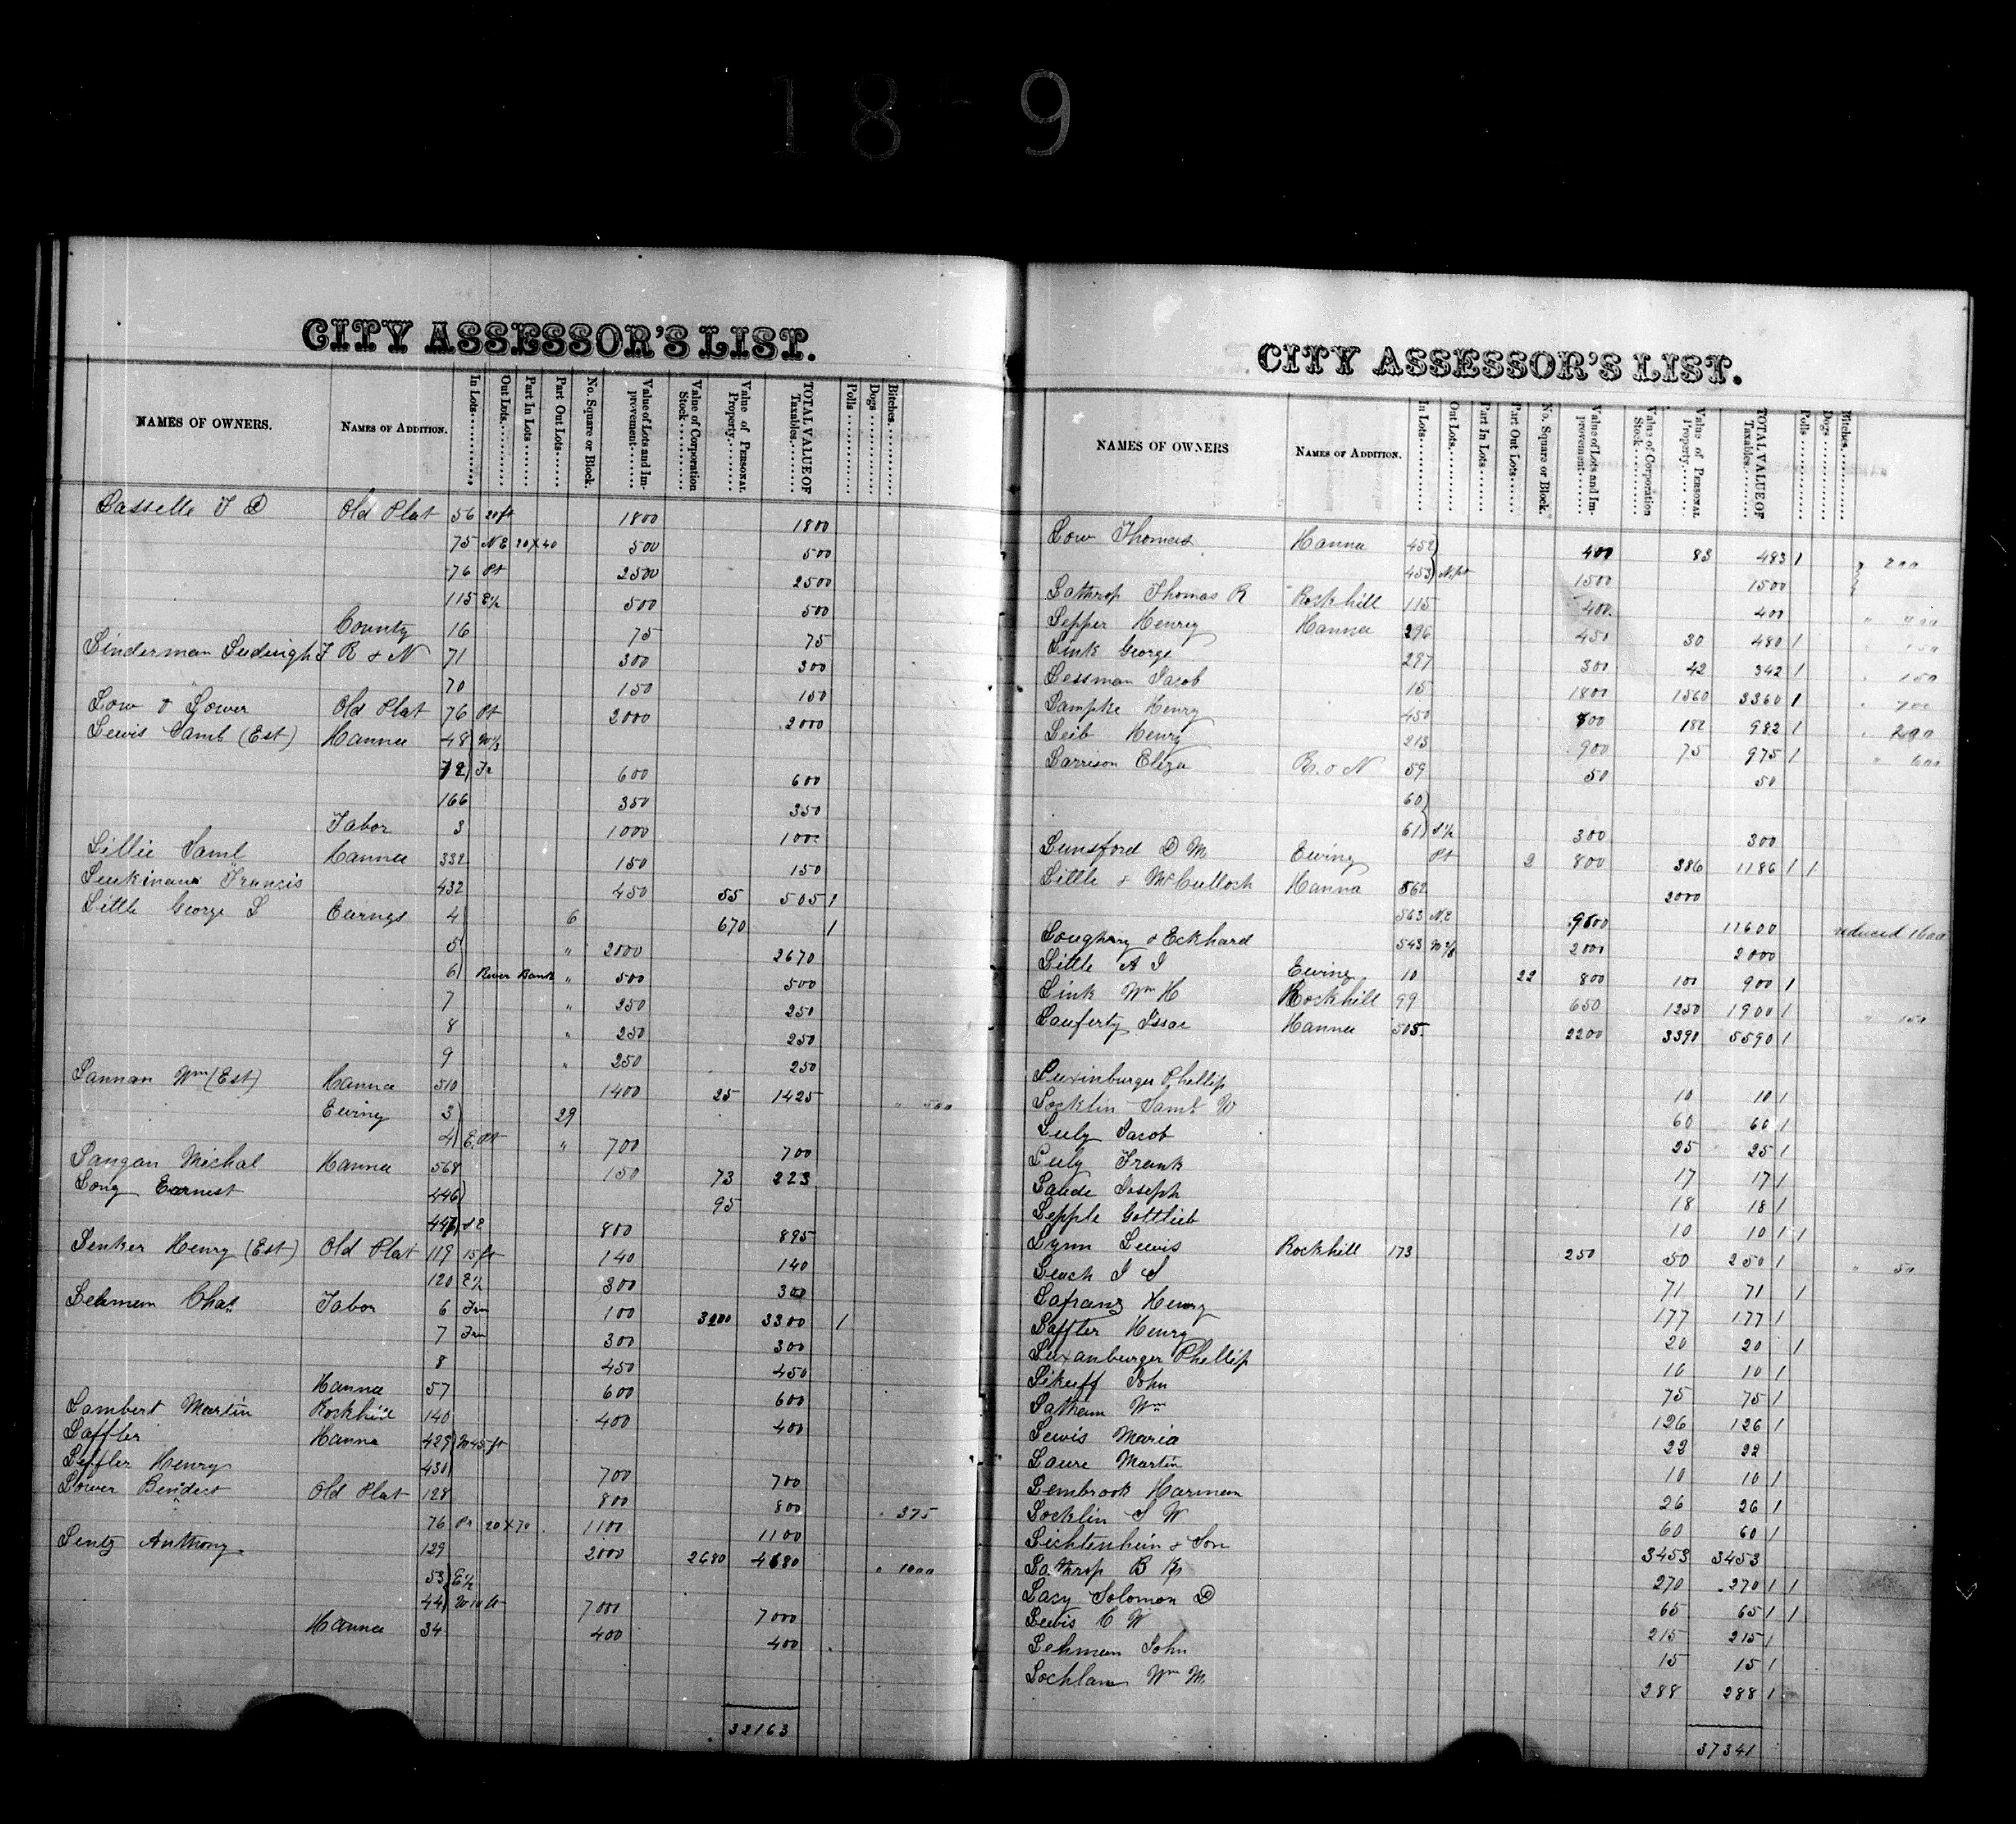 18 9
CITY ASSESSOR'S LIST.
NAMES OF OWNERS. NAMES OF ADDITION. In Lots Out Lots Part In Lots Part Out Lots No. Square or Block. Value of Lots and Improvement Value of Corporation Stock Value of PERSONAL Property TOTAL VALUE OF Taxables Polls Dogs Bitches
Lasselle F D Old Plat 56 20 ft 1800 1800
75 NE 20 X 40 500 500
76 Pt 2500 2500
115 E½ 500 500
County 16 75 75
Linderman Ludwigh F R & N 71 300 300
70 150 150
Low & Lower Old Plat 76 Pt 2000 2000
Lewis Saml (Est) Hanna 48 W⅓
72 Fr 600 600
166 350 350
Tabor 3 1000 1000
Lillie Saml Hanna 332 150 150
Francis 432 450 55 505 1
Little George L Ewings 4 6 670 1
5 " 2000 2670
6 River Bank " 500 500
7 " 250 250
8 " 250 250
9 " 250 250
Lannan Wm (Est) Hanna 510 1400 25 1425 " 500
Ewing 3 29
4 E. Pt " 700 700
Langan Michal Hanna 568 150 73 223
Long Earnest 446 95
447 S E 800 895
Lenker Henry (Est) Old Plat 119 15 ft 140 140
120 E½ 300 300
Lehman Chas Tabor 6 100 3200 3300 1
7 300 300
8 450 450
Hanna 57 600 600
Lambert Martin Rockhill 140 400 400
Laffler Hanna 429 W 45 ft
Leffler Henry 430 700 700
Lower Bendict Old Plat 128 800 800 " 375
" 76 Pt 20 X 70 1100 1100
Lentz Anthony 129 2000 2680 4680 " 1000
53 E½
44 W 10 ft 7000 7000
Hanna 34 400 400
32163
CITY ASSESSOR'S LIST.
NAMES OF OWNERS NAMES OF ADDITION. In Lots Out Lots Part In Lots Part Out Lots No. Square or Block. Value of Lots and Improvement Value of Corporation Stock Value of PERSONAL Property TOTAL VALUE OF Taxables Polls Dogs Bitches
Low Thomas Hanna 452 400 83 483 1 " 200
453 N. pt 1500 1500
Lathrop Thomas R Rockhill 115 400 400
Lepper Henrey Hanna 296 450 30 480 1
Link George 297 300 42 342 1 " 150
Lessman Jacob 15 1800 1560 3360 1
Lampke Henry 450 800 182 982 1 " 200
Leib Henry 213 900 75 975 1 " 600
Larrison Eliza R. & N 59 50 50
60
61 S½ 300 300
Lunsford D M Ewing Pt 2 800 386 1186 1 1
Little & McCulloch Hanna 562 2000
563 N.E 9600 11600 reduced 1600
Loughrey & Eckhard 543 2000 2000
Little A J Ewing 10 22 800 100 900 1
Link Wm H Rockhill 99 650 1250 1900 1 " 150
Lauferty Issac Hanna 505 2200 3390 5590 1
Luxinburger Phellip 10 10 1
Locklin Saml W 60 60 1
Luly Jacob 25 25 1
Luly Frank 17 17 1
Laude Joseph 18 18 1
Lepple Gottlieb 10 10 1 1
Lynn Lewis Rockhill 173 250 50 250 1 " 50
Leach J S 71 71 1
Lafranz Henry 177 177 1
Laffler Henry 20 20 1
Luxanburger Phellip 10 10 1
Likuff John 75 75 1
Latham Wm 126 126 1
Lewis Maria 22 22
Laure Martin 10 10 1
Lembrook Harman 26 26 1
Locklin S W 60 60 1
Lichtenhein & Son 3453 3453
Lathrop B 270 270 1 1
Lacy Solomon D 65 65 1 1
Lewis C W 215 215 1
Lehman John 15 15 1
Lochlan Wm M 288 288 1
37341